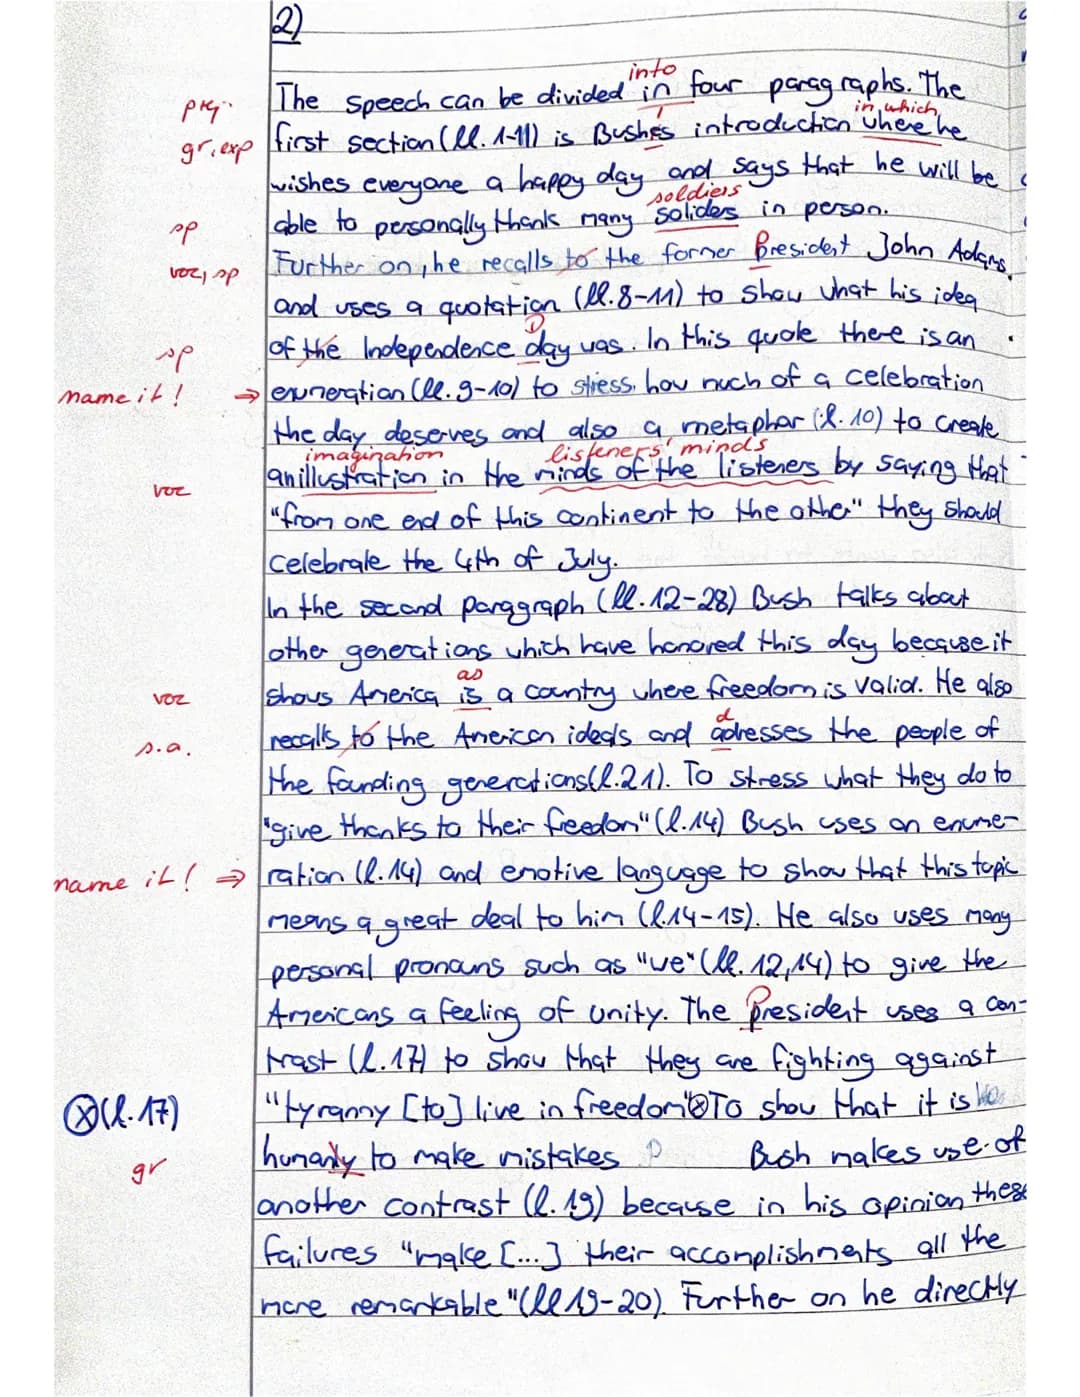 2)
into
prep. The speech can be divided in four paragraphs. The
in which
gr, exp first section (ll. 1-11) is Bushes introduction where he
wishes everyone a happy day and says that he will be
soldiers
sp able to personally thank many soliders in person.
voc, sp Further on, he recalls to the former President John Adams,
and uses a quotation (ll. 8-11) to show what his idea
D
sp of the Independence day was. In this quote there is an
name it! ⇒ enumeration (ll. 9-10) to stress, how much of a celebration
the day deserves and also a metaphor (l. 10) to create
imagination listeners' minds
voc an illustration in the minds of the listeners by saying that
"from one end of this continent to the other" they should
celebrate the 4th of July.
In the second paragraph (ll. 12-28) Bush talks about
other generations which have honored this day because it
as
voc shows America is a country where freedom is valid. He also
d
s.a. recalls to the American ideals and adresses the people of
the founding generations (l. 21). To stress what they do to
"give thanks to their freedom" (l. 14) Bush uses an enume-
name it! ⇒ ration (l. 14) and emotive language to show that this topic
means a great deal to him (l. 14-15). He also uses many
personal pronouns such as "we" (ll. 12, 14) to give the
Americans a feeling of unity. The President uses a con-
trast (l. 17) to show that they are fighting against
⊗(l. 17) "tyranny [to] live in freedom"⊗ To show that it is
gr humanly to make mistakes Bush makes use of
another contrast (l. 19) because in his opinion these
failures "make [...] their accomplishments all the
more remarkable" (ll 19-20). Further on he directly